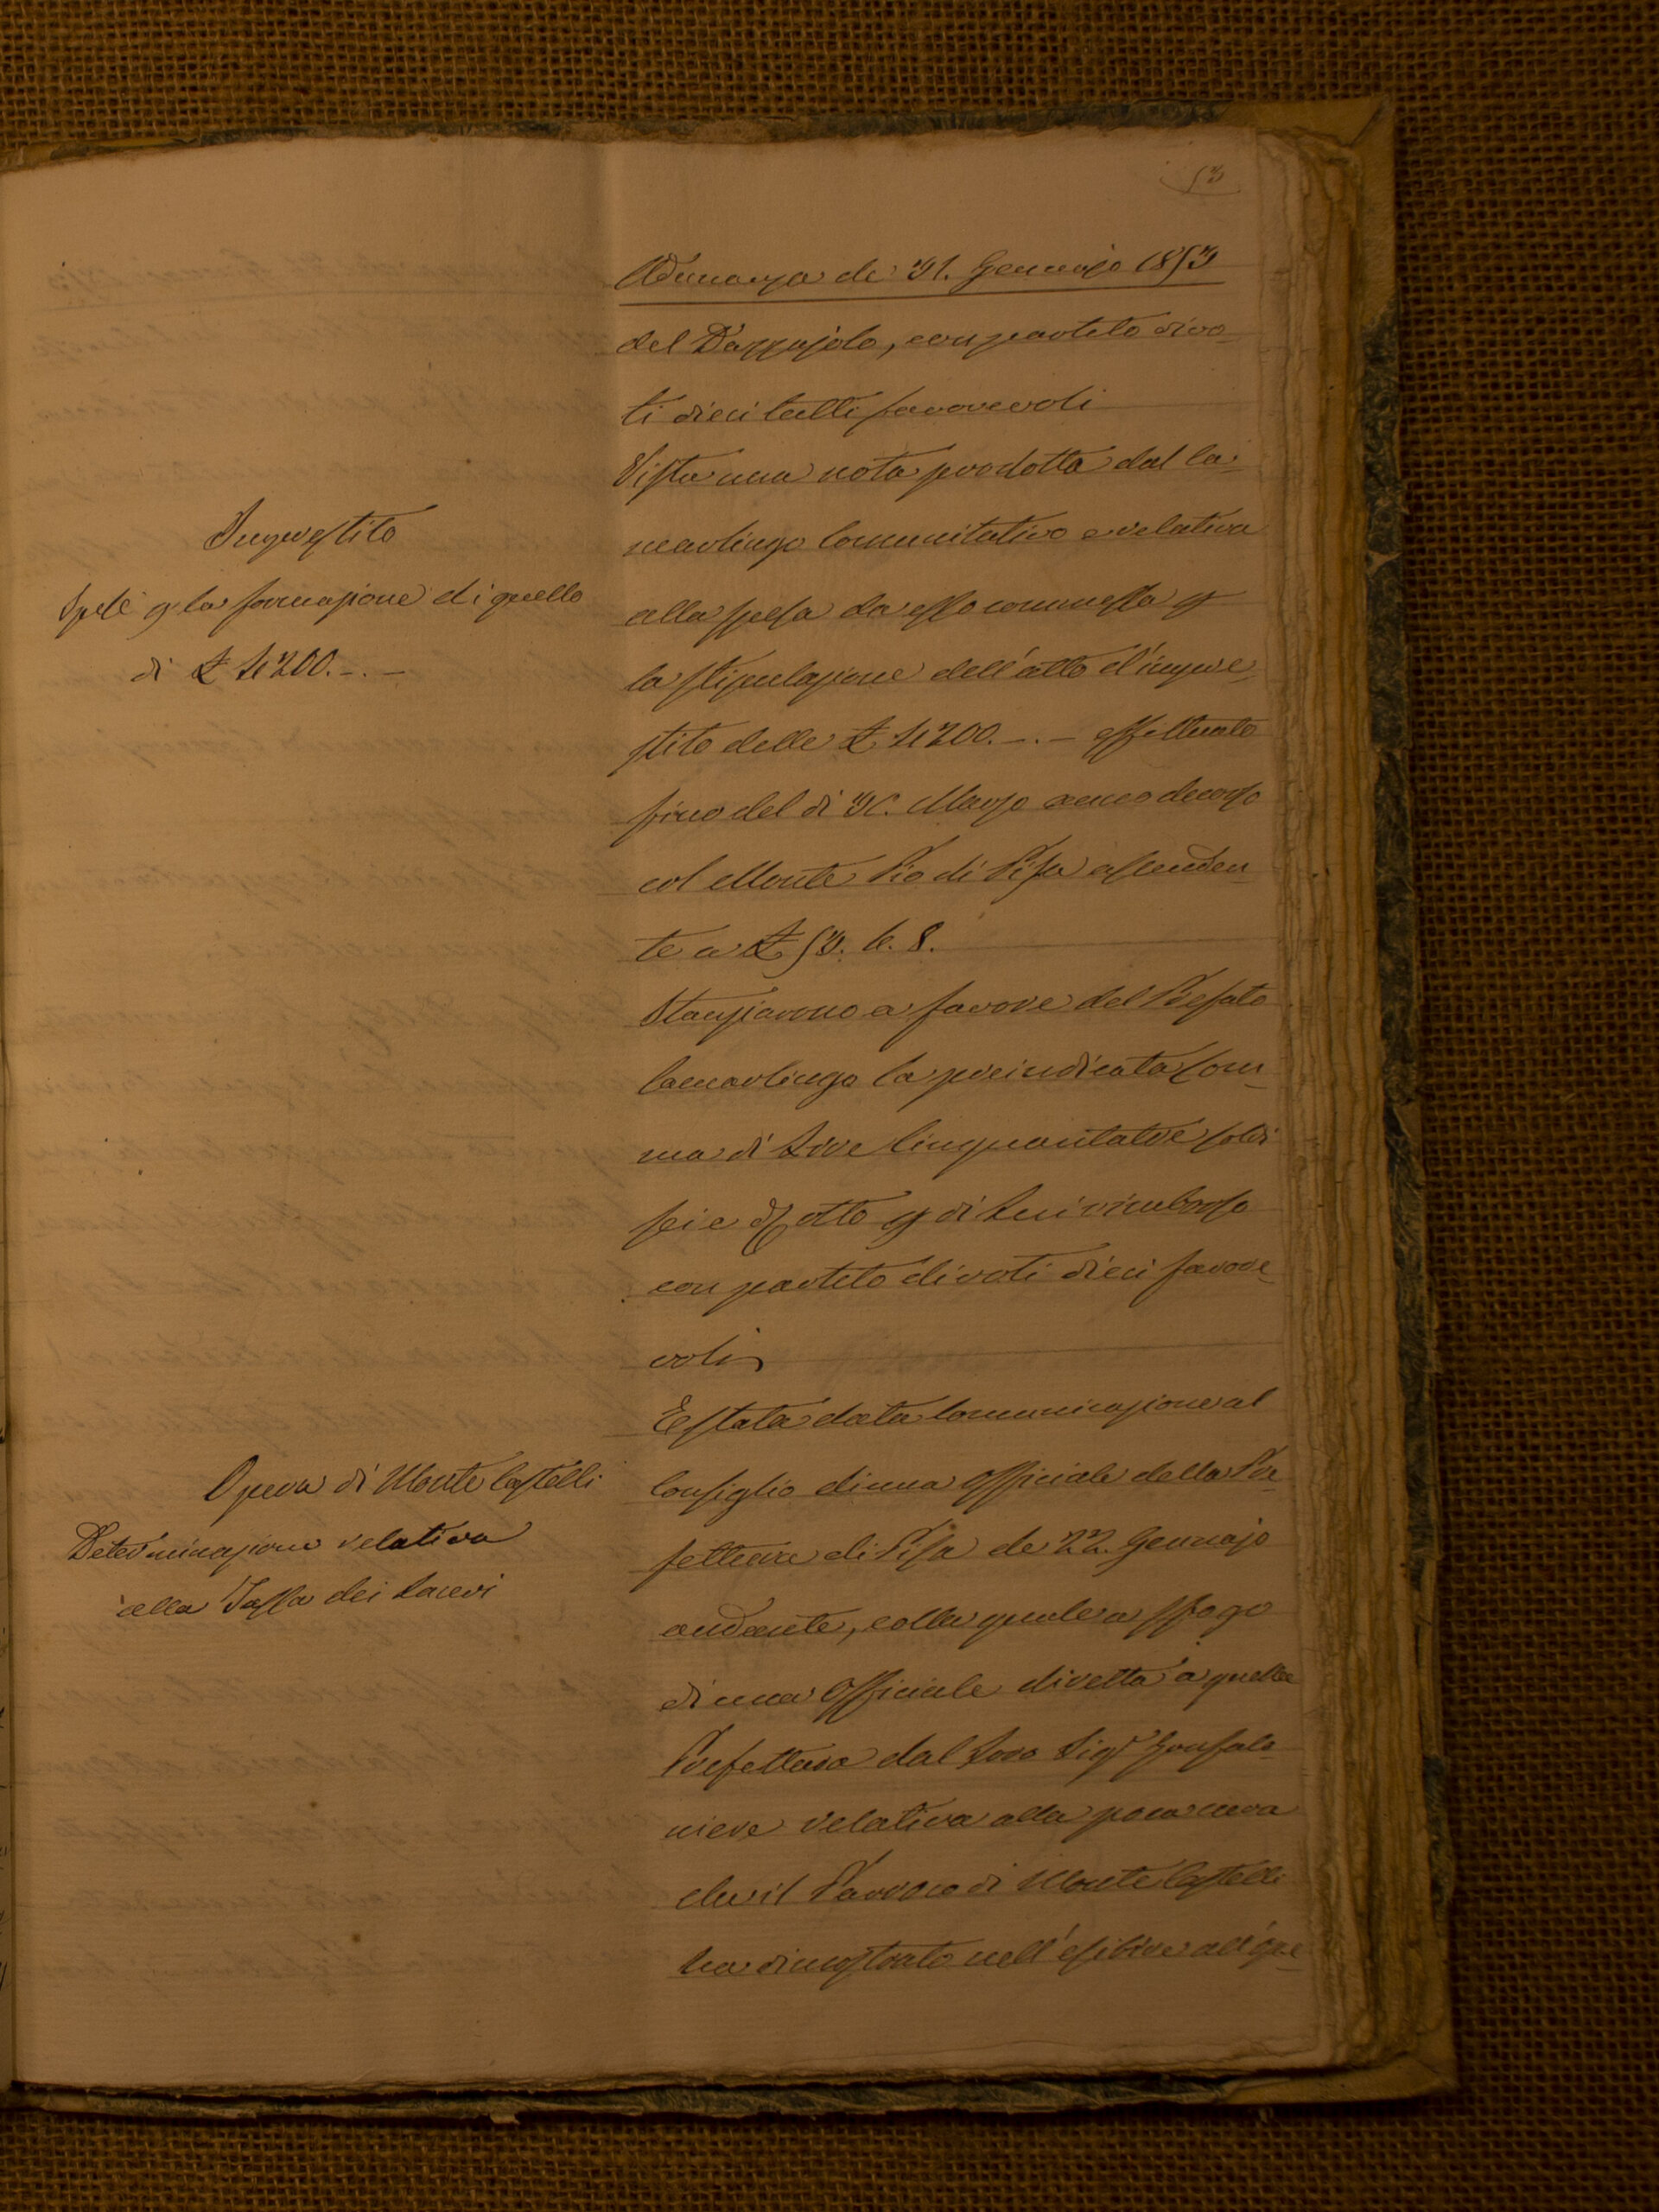 53
Adunanza de' 31. Gennajo 1853
del Dazzajolo, con partito di vo-
ti dieci tutti favorevoli
Vista una nota prodotta dal Ca-
marlingo Comunitativo e relativa
alla spesa da esso commessa p
la stipulazione dell'atto d'impre-
stito delle £ 4200.-.- effettuato
fino del dì 31. Marzo anno decorso
col Monte Pio di Pisa ascenden-
te a £ 53. 6. 8.
Stanziarono a favore del Prefato
Camarlingo la preindicata som-
ma di Lire Cinquantatre soldi
sei e d otto p di Lui rimborso
con partito di voti dieci favore-
voli
Imprestito
Spese p la formazione di quello
di £ 4200.-.-
E stata data Comunicazione al
Consiglio di una Officiale della Pre-
fettura di Pisa de' 22. Gennajo
andante, colla quale a sfogo
di una Officiale diretta a quella
Prefettura dal Loro Sigr Gonfalo-
niere relativa alla poca cura
che il Parroco di Monte Castelli
ha dimostrato nell'esibire all'ope-
Opera di Monte Castelli
Determinazione relativa
alla Tassa dei Lucri